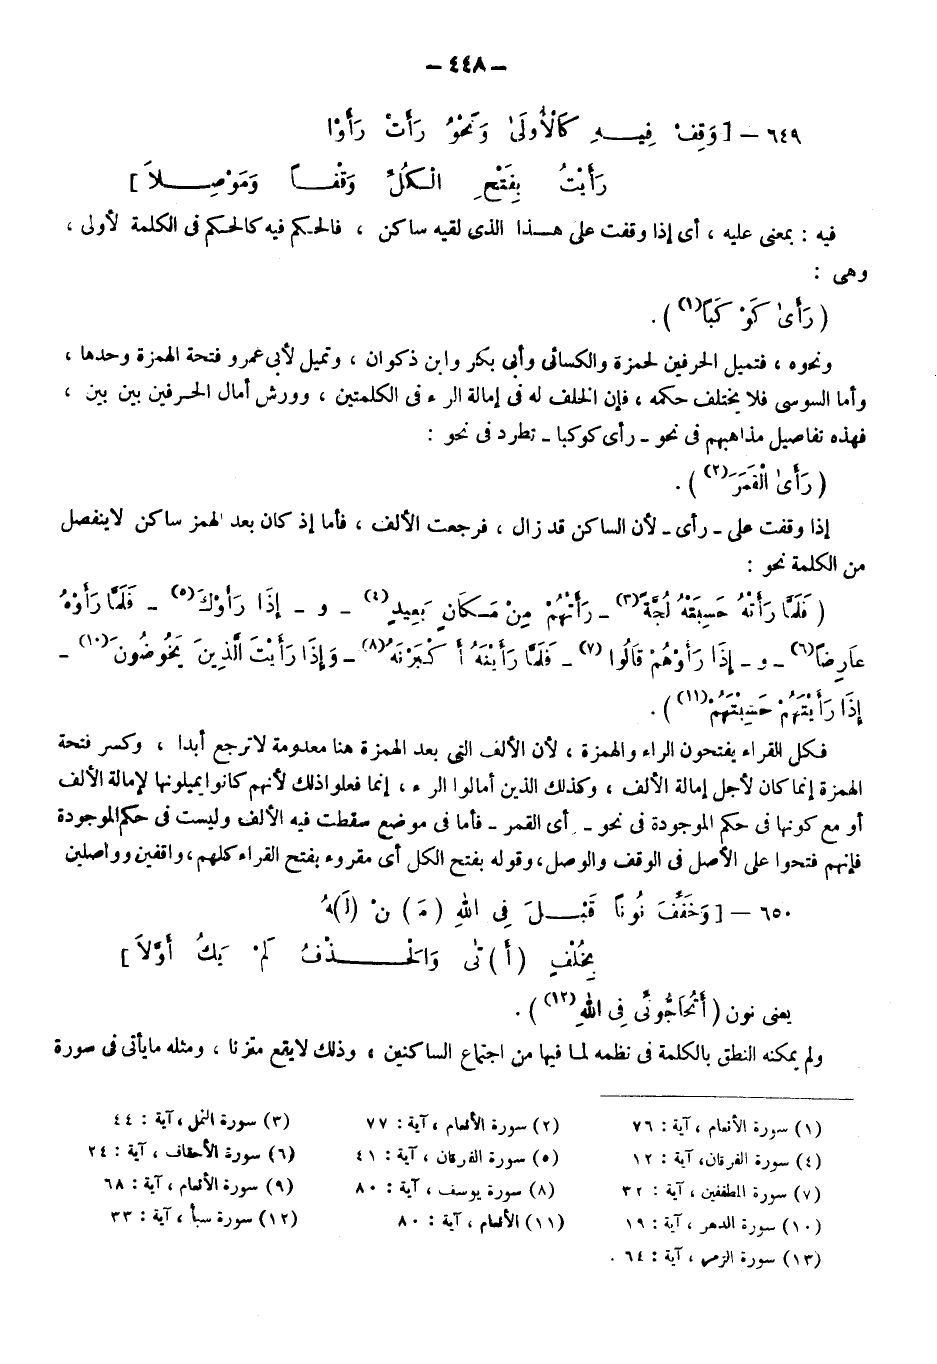 – ٤٤٨ –
٦٤٩ – [ وَقِفْ فِيــهِ كَالْأُولَىٰ وَنَحْوُ رَأَتْ رَأَوْا
رَأَيْتُ بِفَتْحِ الْـكُلِّ وَقْفــاً وَمَوْصِــلاَ ]
فيه : بمعنى عليه ، أى إذا وقفت على هــذا الذى لقيه ساكن ، فالحـكم فيه كالحـكم فى الكلمة لأولى ،
وهى :
( رَأَىٰ كَوْكَبًا(١) ) .
ونحوه ، فتميل الحرفين لحمزة والكسائى وأبى بكر وابن ذكوان ، وتميل لأبى عمرو فتحة الهمزة وحدها ،
وأما السوسى فلا يختلف حكمه ، فإن الخلف له فى إمالة الر ء فى الكلمتين ، وورش أمال الحـرفين بين بين ،
فهذه تفاصيل مذاهبهم فى نحو ـ رأى كوكبا ـ تطرد فى نحو :
( رَأَىٰ الْقَمَرَ(٢) ) .
إذا وقفت على ـ رأى ـ لأن الساكن قد زال ، فرجعت الألف ، فأما إذ كان بعد لهمز ساكن لاينفصل
من الكلمة نحو :
( فَلَمَّا رَأَتْهُ حَسِبَتْهُ لُجَّةً(٣) ـ رَأَتْهُمْ مِنْ مَـكَانٍ بَعِيدٍ(٤) ـ و ـ إِذَا رَأَوْكَ(٥) ـ فَلَمَّا رَأَوْهُ
عَارِضاً(٦) ـ و ـ إِذَا رَأَوْهُمْ قَالُوا (٧) ـ فَلَمَّا رَأَيْنَهُ أَكْبَرْنَهُ(٨) ـ وَإِذَا رَأَيْتَ الَّذِينَ يَخُوضُونَ(١٠) ـ
إِذَا رَأَيْتَهُمْ حَسِبْتَهُمْ(١١) ) .
فـكل القراء يفتحون الراء والهمزة ، لأن الألف التى بعد الهمزة هنا معدومة لاترجع أبدا ، وكسر فتحة
الهمزة إنما كان لأجل إمالة الألف ، وكذلك الذين أمالوا الر ء ، إنما فعلوا ذلك لأنهم كانوا يميلونها لإمالة الألف
أو مع كونها فى حكم الموجودة فى نحو ـ أى القمر ـ فأما فى موضع سقطت فيه الألف وليست فى حكم الموجودة
فإنهم فتحوا على الأصل فى الوقف والوصل ، وقوله بفتح الكل أى مقروء بفتح القراء كلهم ، واقفين وواصلين
٦٥٠ – [ وَخَفَّفَ نُوناً قَبْــلَ فِى اللهِ ( مَـ ) نْ ( لَـ ) ـهُ
بِخُلْفٍ ( أَ ) تَى وَالحَــذْفُ لَمْ يَكُ أَوَّلاَ ]
يعنى نون ( أَتُحَاجُّونِّى فِى اللهِ(١٢) ) .
ولم يمكنه النطق بالكلمة فى نظمه لما فيها من اجتماع الساكنين ، وذلك لايقع متزنا ، ومثله مايأتى فى سورة
(١) سورة الأنعام ، آية : ٧٦ (٢) سورة الأنعام ، آية : ٧٧ (٣) سورة النمل ، آية : ٤٤
(٤) سورة الفرقان، آية : ١٢ (٥) سورة الفرقان ، آية : ٤١ (٦) سورة الأحقاف ، آية : ٢٤
(٧) سورة المطففين ، آية : ٣٢ (٨) سورة يوسف ، آية : ٨٠ (٩) سورة الأنعام ، آية : ٦٨
(١٠) سورة الدهر ، آية : ١٩ (١١) الأنعام ، آية : ٨٠ (١٢) سورة سبأ ، آية : ٣٣
(١٣) سورة الزمر ، آية : ٦٤ .